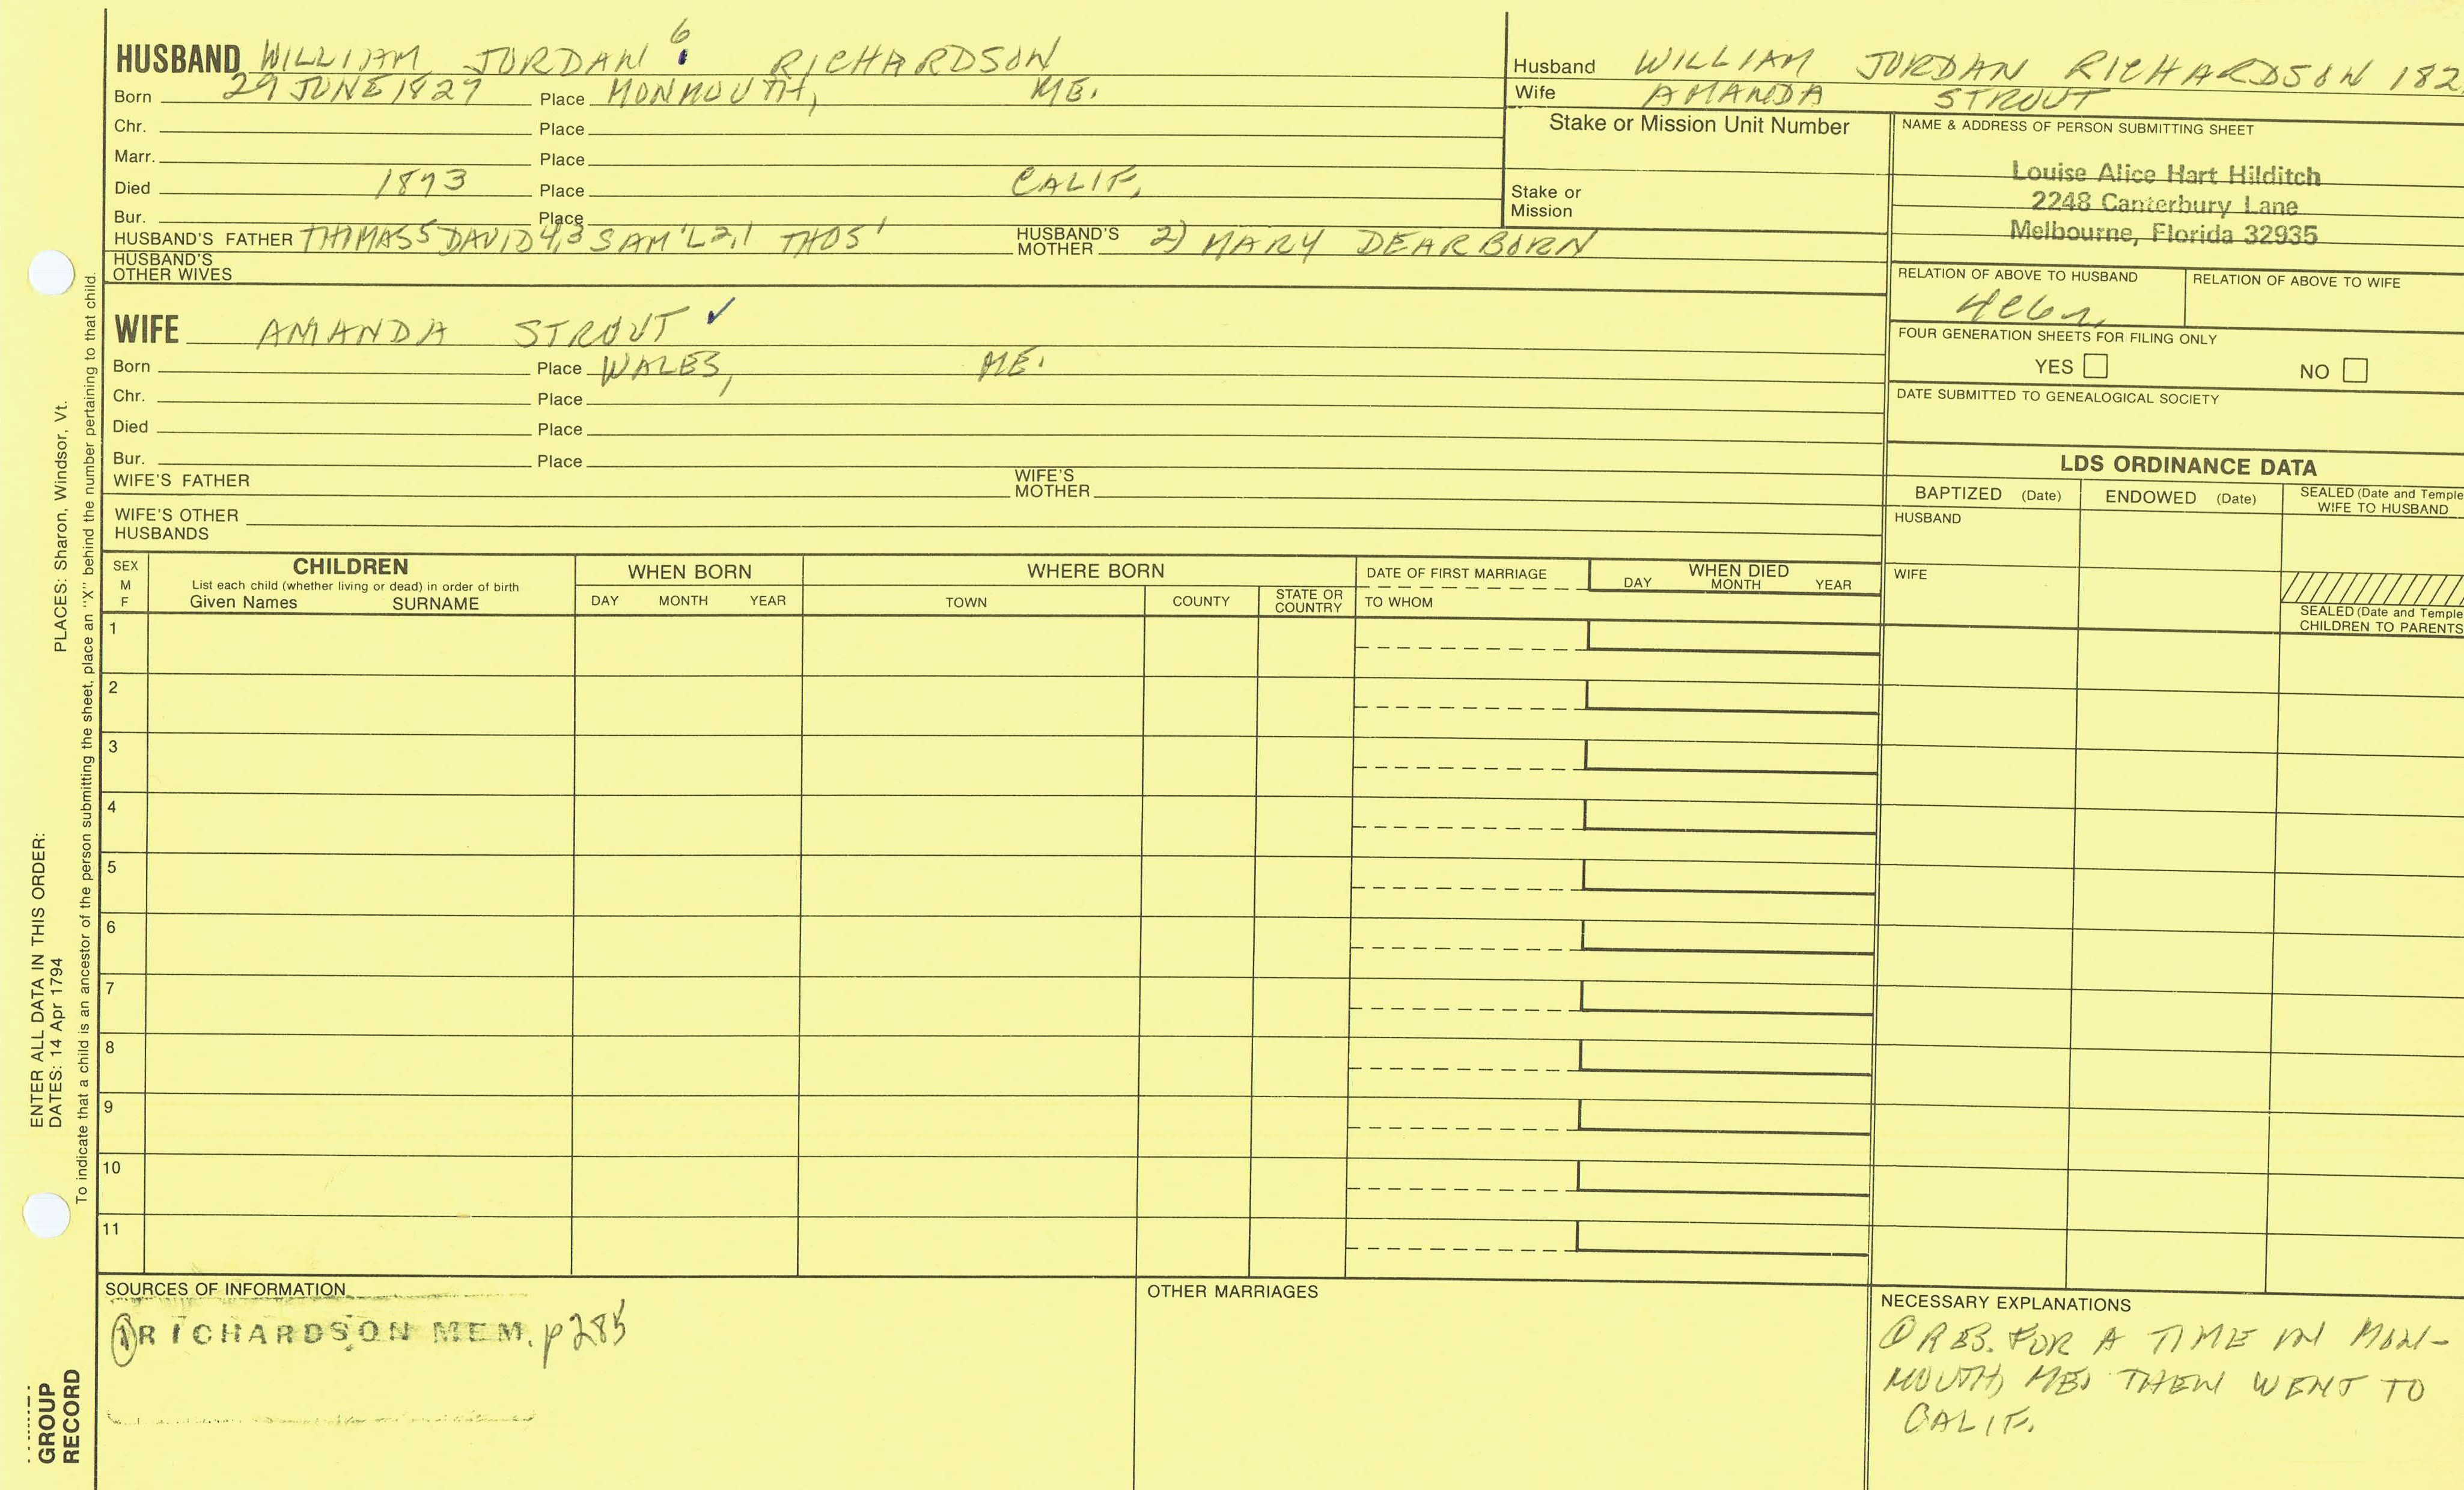 HUSBAND WILLIAM JORDAN 6 RICHARDSON
Born 29 JUNE 1829 Place MONMOUTH, ME.
Chr. Place
Marr. Place
Died 1893 Place CALIF.
Bur. Place
HUSBAND'S FATHER THOMAS5 DAVID4,3 SAM'L2,1 THOS' HUSBAND'S MOTHER 2) MARY DEARBORN
HUSBAND'S OTHER WIVES
WIFE AMANDA STROUT ✓
Born Place WALES, ME.
Chr. Place
Died Place
Bur. Place
WIFE'S FATHER WIFE'S MOTHER
WIFE'S OTHER HUSBANDS
Husband WILLIAM JORDAN RICHARDSON 182
Wife AMANDA STROUT
Stake or Mission Unit Number
Stake or Mission
NAME & ADDRESS OF PERSON SUBMITTING SHEET
Louise Alice Hart Hilditch
2248 Canterbury Lane
Melbourne, Florida 32935
RELATION OF ABOVE TO HUSBAND RELATION OF ABOVE TO WIFE
FOUR GENERATION SHEETS FOR FILING ONLY
YES NO
DATE SUBMITTED TO GENEALOGICAL SOCIETY
LDS ORDINANCE DATA
BAPTIZED (Date) ENDOWED (Date) SEALED (Date and Temple
WIFE TO HUSBAND
HUSBAND
WIFE
SEALED (Date and Temple
CHILDREN TO PARENTS
SEX M F CHILDREN WHEN BORN WHERE BORN DATE OF FIRST MARRIAGE WHEN DIED
List each child (whether living or dead) in order of birth
Given Names SURNAME DAY MONTH YEAR TOWN COUNTY STATE OR COUNTRY TO WHOM DAY MONTH YEAR
1
2
3
4
5
6
7
8
9
10
11
SOURCES OF INFORMATION
① RICHARDSON MEM. p285
OTHER MARRIAGES
NECESSARY EXPLANATIONS
① RES. FOR A TIME IN MON-
MOUTH, ME. THEN WENT TO
CALIF.
ENTER ALL DATA IN THIS ORDER:
DATES: 14 Apr 1794 PLACES: Sharon, Windsor, Vt.
To indicate that a child is an ancestor of the person submitting the sheet, place an "X" behind the number pertaining to that child.
GROUP
RECORD